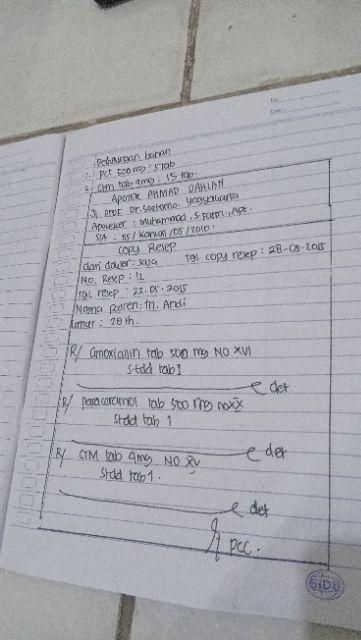 Perhitungan bahan
1. pct 500 mg : 5 tab
2. Ctm tab 4mg : 15 tab
APOTEK AHMAD DAHLAN
Jl. Prof Dr. Soetomo. Yogyakarta
Apoteker : Muhammad, S.Farm., Apt.
Copy Resep
dari dokter : Surya Tgl copy resep : 28-05-2015
No. Resep : 12
Tgl resep : 22-05-2015
Nama pasien : Tn. Andi
Umur : 28 th.
R/ Amoxicillin tab 500 mg NO XVI
S tdd tab I
det
R/ paracetamol tab 500 mg no XX
S tdd tab 1
det
R/ CTM tab 4mg NO XV
S tdd tab 1.
det
pcc.
SIDU